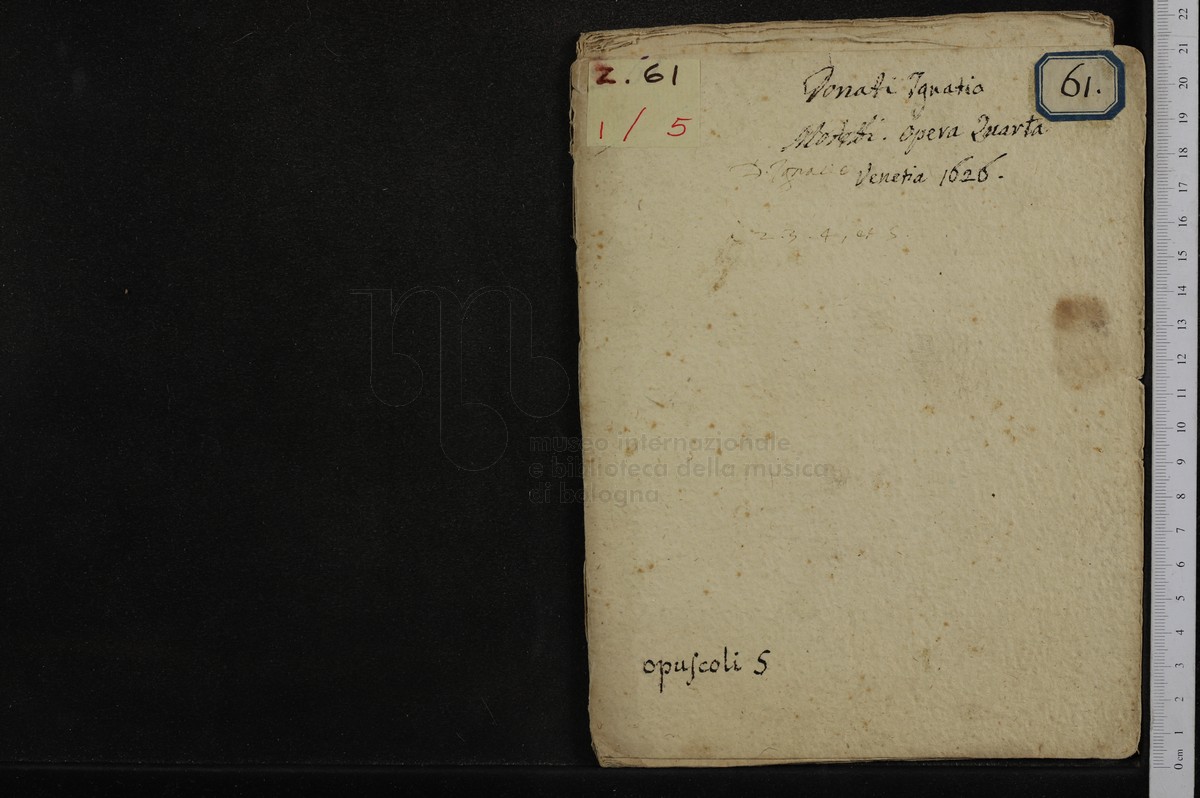 Z. 61
1 / 5
61.
Donati Ignatio
Motetti. Opera Quarta
D. Ignatio Venetia 1626.
2. 3. 4., et 5.
opuſcoli 5
museo internazionale
e biblioteca della musica
di bologna
22
21
20
19
18
17
16
15
14
13
12
11
10
9
8
7
6
5
4
3
2
1
0 cm